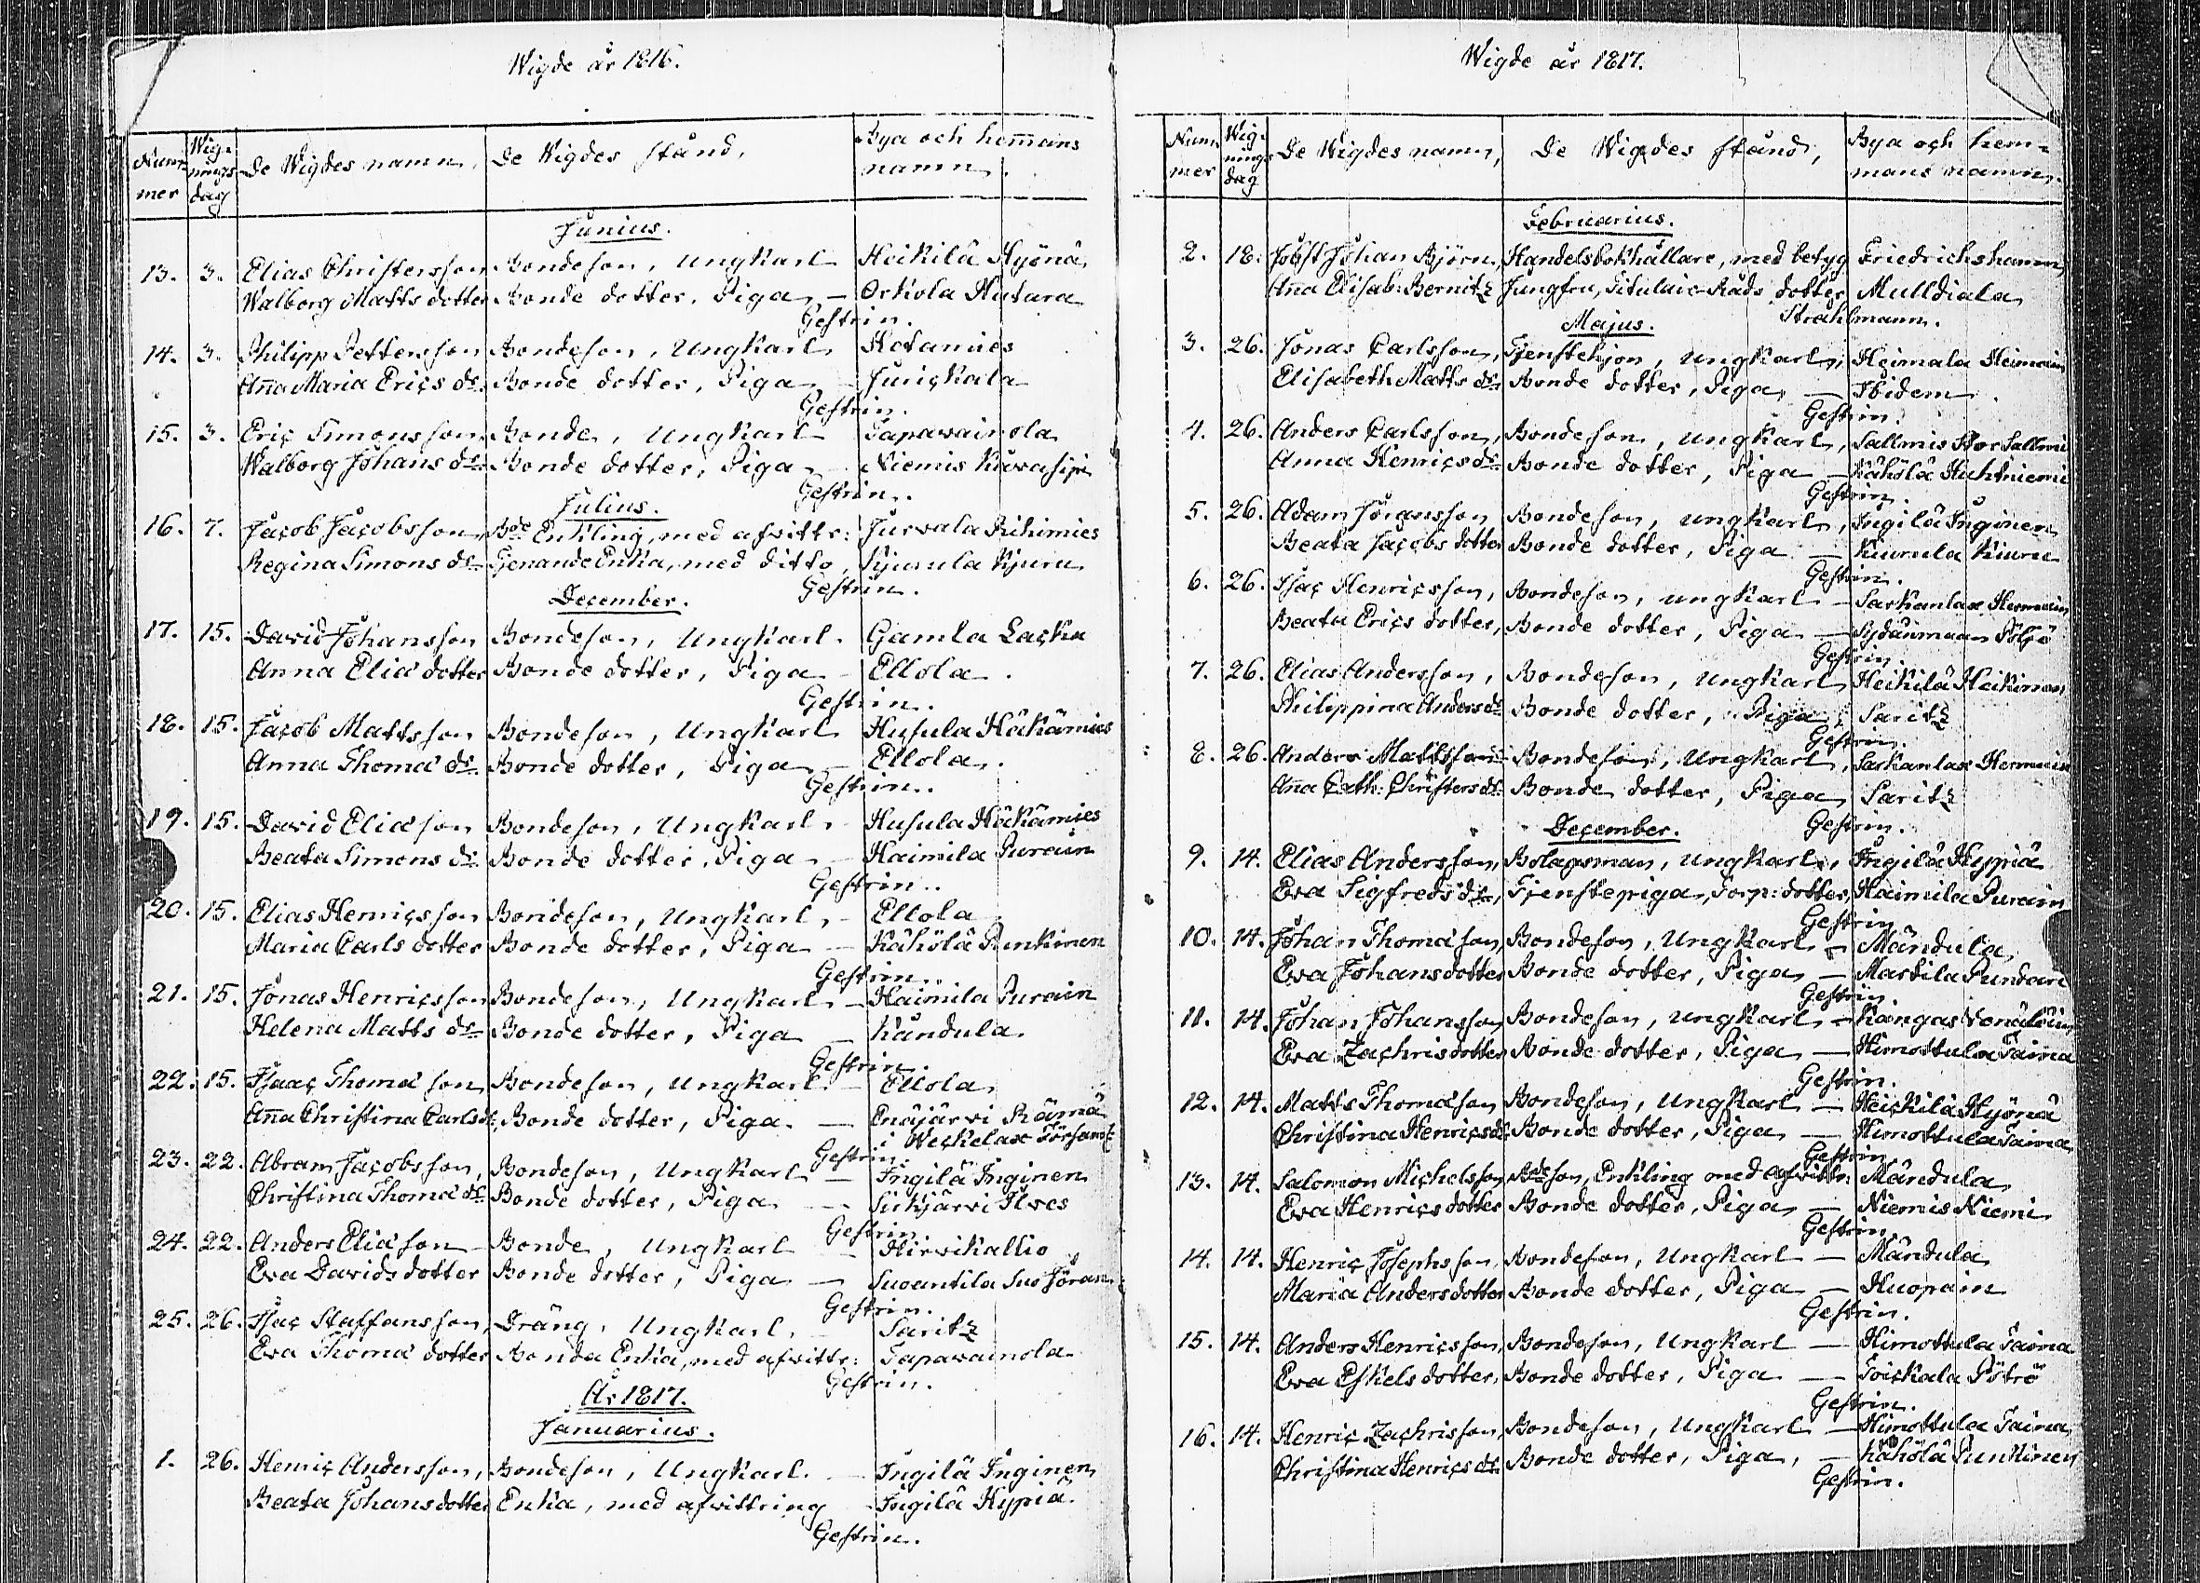 Wigde år 1816.
Nummer Wigningsdag De Wigdes namn, De Wigdes stånd, Bya och hem̄ans namn.
Junius.
13. 3. Elias Christersson Bondeson, Ungkarl Heikilä Hyönä
Walborg Matts dotter Bonde dotter, Piga — Orkola Hutara
Gestrin.
14. 3. Philipp Pettersson Bondeson, Ungkarl Kotamies
An̄a Maria Erics dr. Bonde dotter, Piga — Junickala
Gestrin.
15. 3. Eric Simonsson Bonde, Ungkarl Tapawainola
Walborg Johans dr. Bonde dotter, Piga — Niemis
Gestrin.
Julius.
16. 7. Jacob Jacobsson Bde Enkling, med afvittr: Jurvala Rihimies
Regina Simons dr. Genande Enka, med ditto, Kjurula Kjuru
Gestrin.
December.
17. 15. David Johansson Bondeson, Ungkarl. Gamla Lacka
Anna Eliæ dotter Bonde dotter, Piga — Ellola.
Gestrin.
18. 15. Jacob Mattsson Bondeson, Ungkarl Husula Häkämies
Anna Thomæ dr. Bonde dotter, Piga — Ellola.
Gestrin.
19. 15. David Eliæson Bondeson, Ungkarl. Husula Häkämies
Beata Simons dr. Bonde dotter, Piga — Haimila Purain
Gestrin.
20. 15. Elias Henricsson Bondeson, Ungkarl — Ellola
Maria Carls dotter Bonde dotter, Piga — Kähölä Runkinen
Gestrin.
21. 15. Jonas Henricsson Bondeson, Ungkarl — Haimila Purain
Helena Matts dr. Bonde dotter, Piga — Kändula.
Gestrin.
22. 15. Isaac Thomæ son Bondeson, Ungkarl — Ellola
An̄a Christina Carls dr. Bonde dotter, Piga. — Enäjärvi Rämä
i Weckelax
Gestrin.
23. 22. Abram Jacobsson, Bondeson, Ungkarl — Ingilä Inginen
Christina Thomæ dr. Bonde dotter, Piga — Sirkjärvi Ilves
Gestrin.
24. 22. Anders Eliæson Bonde, Ungkarl — Hirvikallio
Eva Davids dotter Bonde dotter, Piga — Suoantila Suo Jöran
Gestrin.
25. 26. Isac Staffansson, Dräng, Ungkarl, — Saritz
Eva Thomæ dotter Bonda Enka, med afvittr: Tapawainola
Gestrin.
År 1817.
Januarius.
1. 26. Henric Andersson, Bondeson, Ungkarl. — Ingilä Inginen
Beata Johansdotter Enka, med afvittring — Ingilä Hypiä.
Gestrin.
Wigde år 1817.
Nummer Wigningsdag De Wigdes namn, De Wigdes stånd, Bya och hemmans namn.
Februarius.
2. 18. Jobst Johan Björn, Handelsbokhållare, med betyg Friedrichshamn
An̄a Elisab: Bernitz Jungfru, Titulair-Råds dotter Mulldiala
Strahlmann.
Majus.
3. 26. Jonas Carlsson, Tjenstehjon, Ungkarl, Heimala Heimain
Elisabeth Matts dr. Bonde dotter, Piga, — Ibidem.
Gestrin.
4. 26. Anders Carlsson, Bondeson, Ungkarl, Sallmis Stor Sallmi
Anna Henrics dr. Bonde dotter, Piga — Kähölä Huhtniemi
Gestrin.
5. 26. Adam Jöransson Bondeson, Ungkarl, Ingilä Inginen
Beata Jacobs dotter Bonde dotter, Piga — Kiurula Kiuru
Gestrin.
6. 26. Isac Henricsson, Bondeson, Ungkarl — Sarkanlax
Beata Erics dotter, Bonde dotter, Piga — Sydänmaan
Gestrin.
7. 26. Elias Andersson, Bondeson, Ungkarl Heikilä Heikinen
Philippina Anders dr. Bonde dotter, Piga, Saritz
Gestrin.
8. 26. Anders Mattsson Bondeson, Ungkarl, Sarkanlax
An̄a Cath: Christers dr. Bonde dotter, Piga Saritz
Gestrin.
December.
9. 14. Elias Andersson, Bolagsman, Ungkarl, Ingilä Hypiä
Eva Sigfreds dr., Tjenstepiga, Torp: dotter, Haimila Purain
Gestrin.
10. 14. Johan Thomæson Bondeson, Ungkarl — Mändula,
Eva Johansdotter Bonde dotter, Piga — Martila Pundari
Gestrin.
11. 14. Johan Johansson Bondeson, Ungkarl — Kangas
Eva Zachrisdotter Bonde dotter, Piga — Himottula Taina
Gestrin.
12. 14. Matts Thomæson Bondeson, Ungkarl — Heickilä Hyönä
Christina Henrics dr. Bonde dotter, Piga — Himottula Taina
Gestrin.
13. 14. Salomon Michelsson Bdeson, Enkling med afvittr: Mändula
Eva Henrics dotter Bonde dotter, Piga — Niemis Niemi
Gestrin.
14. 14. Henric Josephsson, Bondeson, Ungkarl — Mändula
Maria Andersdotter Bonde dotter, Piga — Huopain
Gestrin.
15. 14. Anders Henricsson, Bondeson, Ungkarl — Himottula Taina
Eva Eskels dotter, Bonde dotter, Piga — Toickala Pötrö
Gestrin.
16. 14. Henric Zachrisson, Bondeson, Ungkarl — Himottula Taina,
Christina Henrics dr. Bonde dotter, Piga, — Kähölä Runkinen
Gestrin.